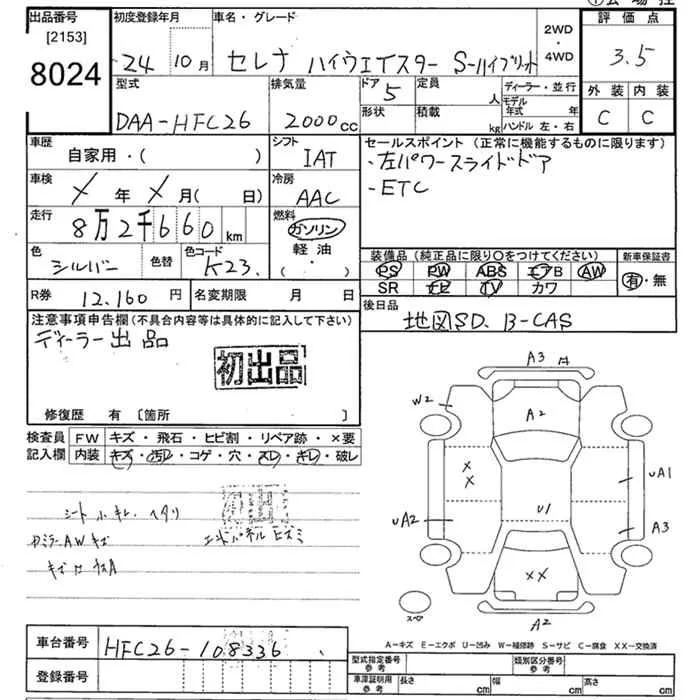 出品番号 初度登録年月 車名・グレード 2WD・4WD 評価点
[2153]
8024 24 10月 セレナ ハイウエイスター S-ハイブリット 3.5
型式 排気量 ドア 定員 人 ディーラー・並行 外装 内装
DAA-HFC26 2000cc 5 形状 積載 kg モデル年式 年 ハンドル 左・右 C C
車歴 自家用・( ) シフト IAT セールスポイント(正常に機能するものに限ります)
・左パワースライドドア
・ETC
車検 X年 X月( 日) 冷房 AAC
走行 8万2千660km 燃料 ガソリン 軽油・( )
色 シルバー 色替 色コード K23.
装備品(純正品に限り○をつけてください) 新車保証書
PS PW ABS エアB AW 有・無
SR ナビ TV カワ
R券 12.160円 名変期限 月 日
後日品 地図SD、B-CAS
注意事項申告欄(不具合内容等は具体的に記入して下さい)
ディーラー出品
初出品
修復歴 有 [箇所 ]
検査員 FW キズ・飛石・ヒビ割・リペア跡・×要
記入欄 内装 キズ・汚レ・コゲ・穴・スレ・キレ・破レ
シート
エンドパネルヒズミ
A3
W2
A2
X
X
UA1
U1
UA2
A3
XX
スペア
A2
A-キズ E-エクボ U-凹み W-補修跡 S-サビ C-腐食 XX-交換済
車台番号 HFC26-108336
登録番号
型式指定番号 参考 類別区分番号 参考
車庫証明用 参考 長さ cm 幅 cm 高さ cm